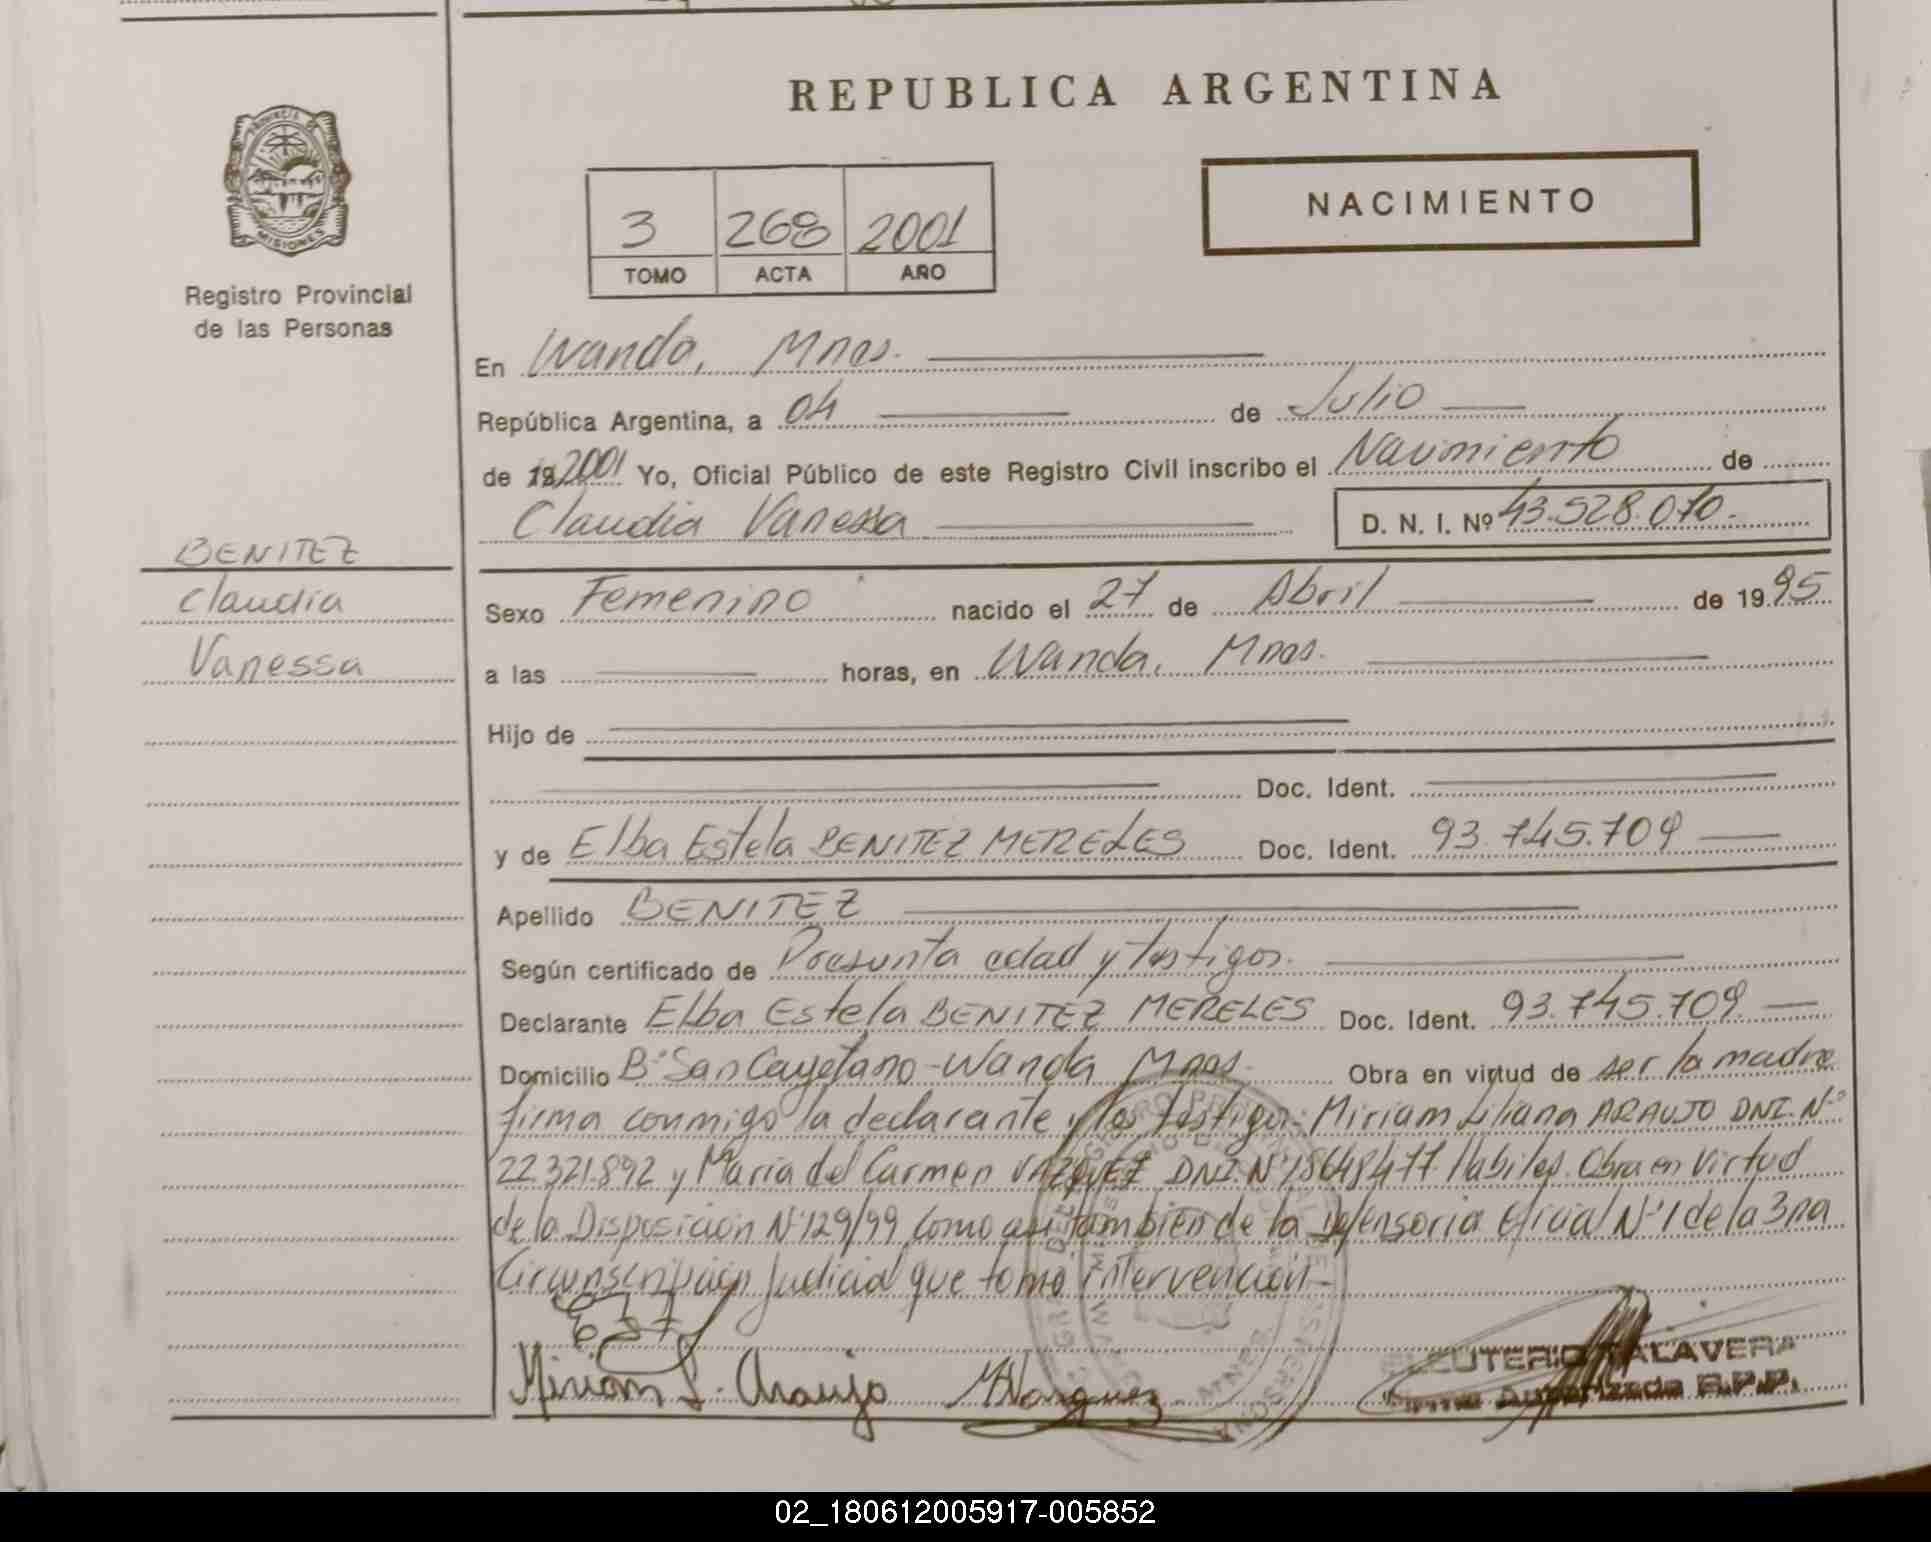 REPUBLICA ARGENTINA
PROVINCIA DE
MISIONES
Registro Provincial
de las Personas
NACIMIENTO
3 268 2001
TOMO ACTA AÑO
En Wanda, Mnes.
República Argentina, a 04 de Julio
de 192001 Yo, Oficial Público de este Registro Civil inscribo el Nacimiento de
Claudia Vanessa D. N. I. Nº 43.528.070.
BENITEZ
Claudia
Vanessa
Sexo Femenino nacido el 27 de Abril de 1995
a las horas, en Wanda, Mnes.
Hijo de
Doc. Ident.
y de Elba Estela BENITEZ MERELES Doc. Ident. 93.745.709
Apellido BENITEZ
Según certificado de Presunta edad y testigos.
Declarante Elba Estela BENITEZ MERELES Doc. Ident. 93.745.709
Domicilio Bº San Cayetano - Wanda Mnes. Obra en virtud de ser la madre
firma conmigo la declarante y los testigos: Miriam Liliana ARAUJO DNI. Nº
22.321.892 y María del Carmen VAZQUEZ DNI. Nº 18648477. Habiles. Obra en Virtud
de la Disposición Nº 129/99, como asi también de la Defensoria Oficial Nº 1 de la 3ra
Circunscripción Judicial que tomo intervención.
Miriam L. Araujo MVazquez
ELEUTERIO TALAVERA
Firma Autorizada R.P.P.
02_180612005917-005852